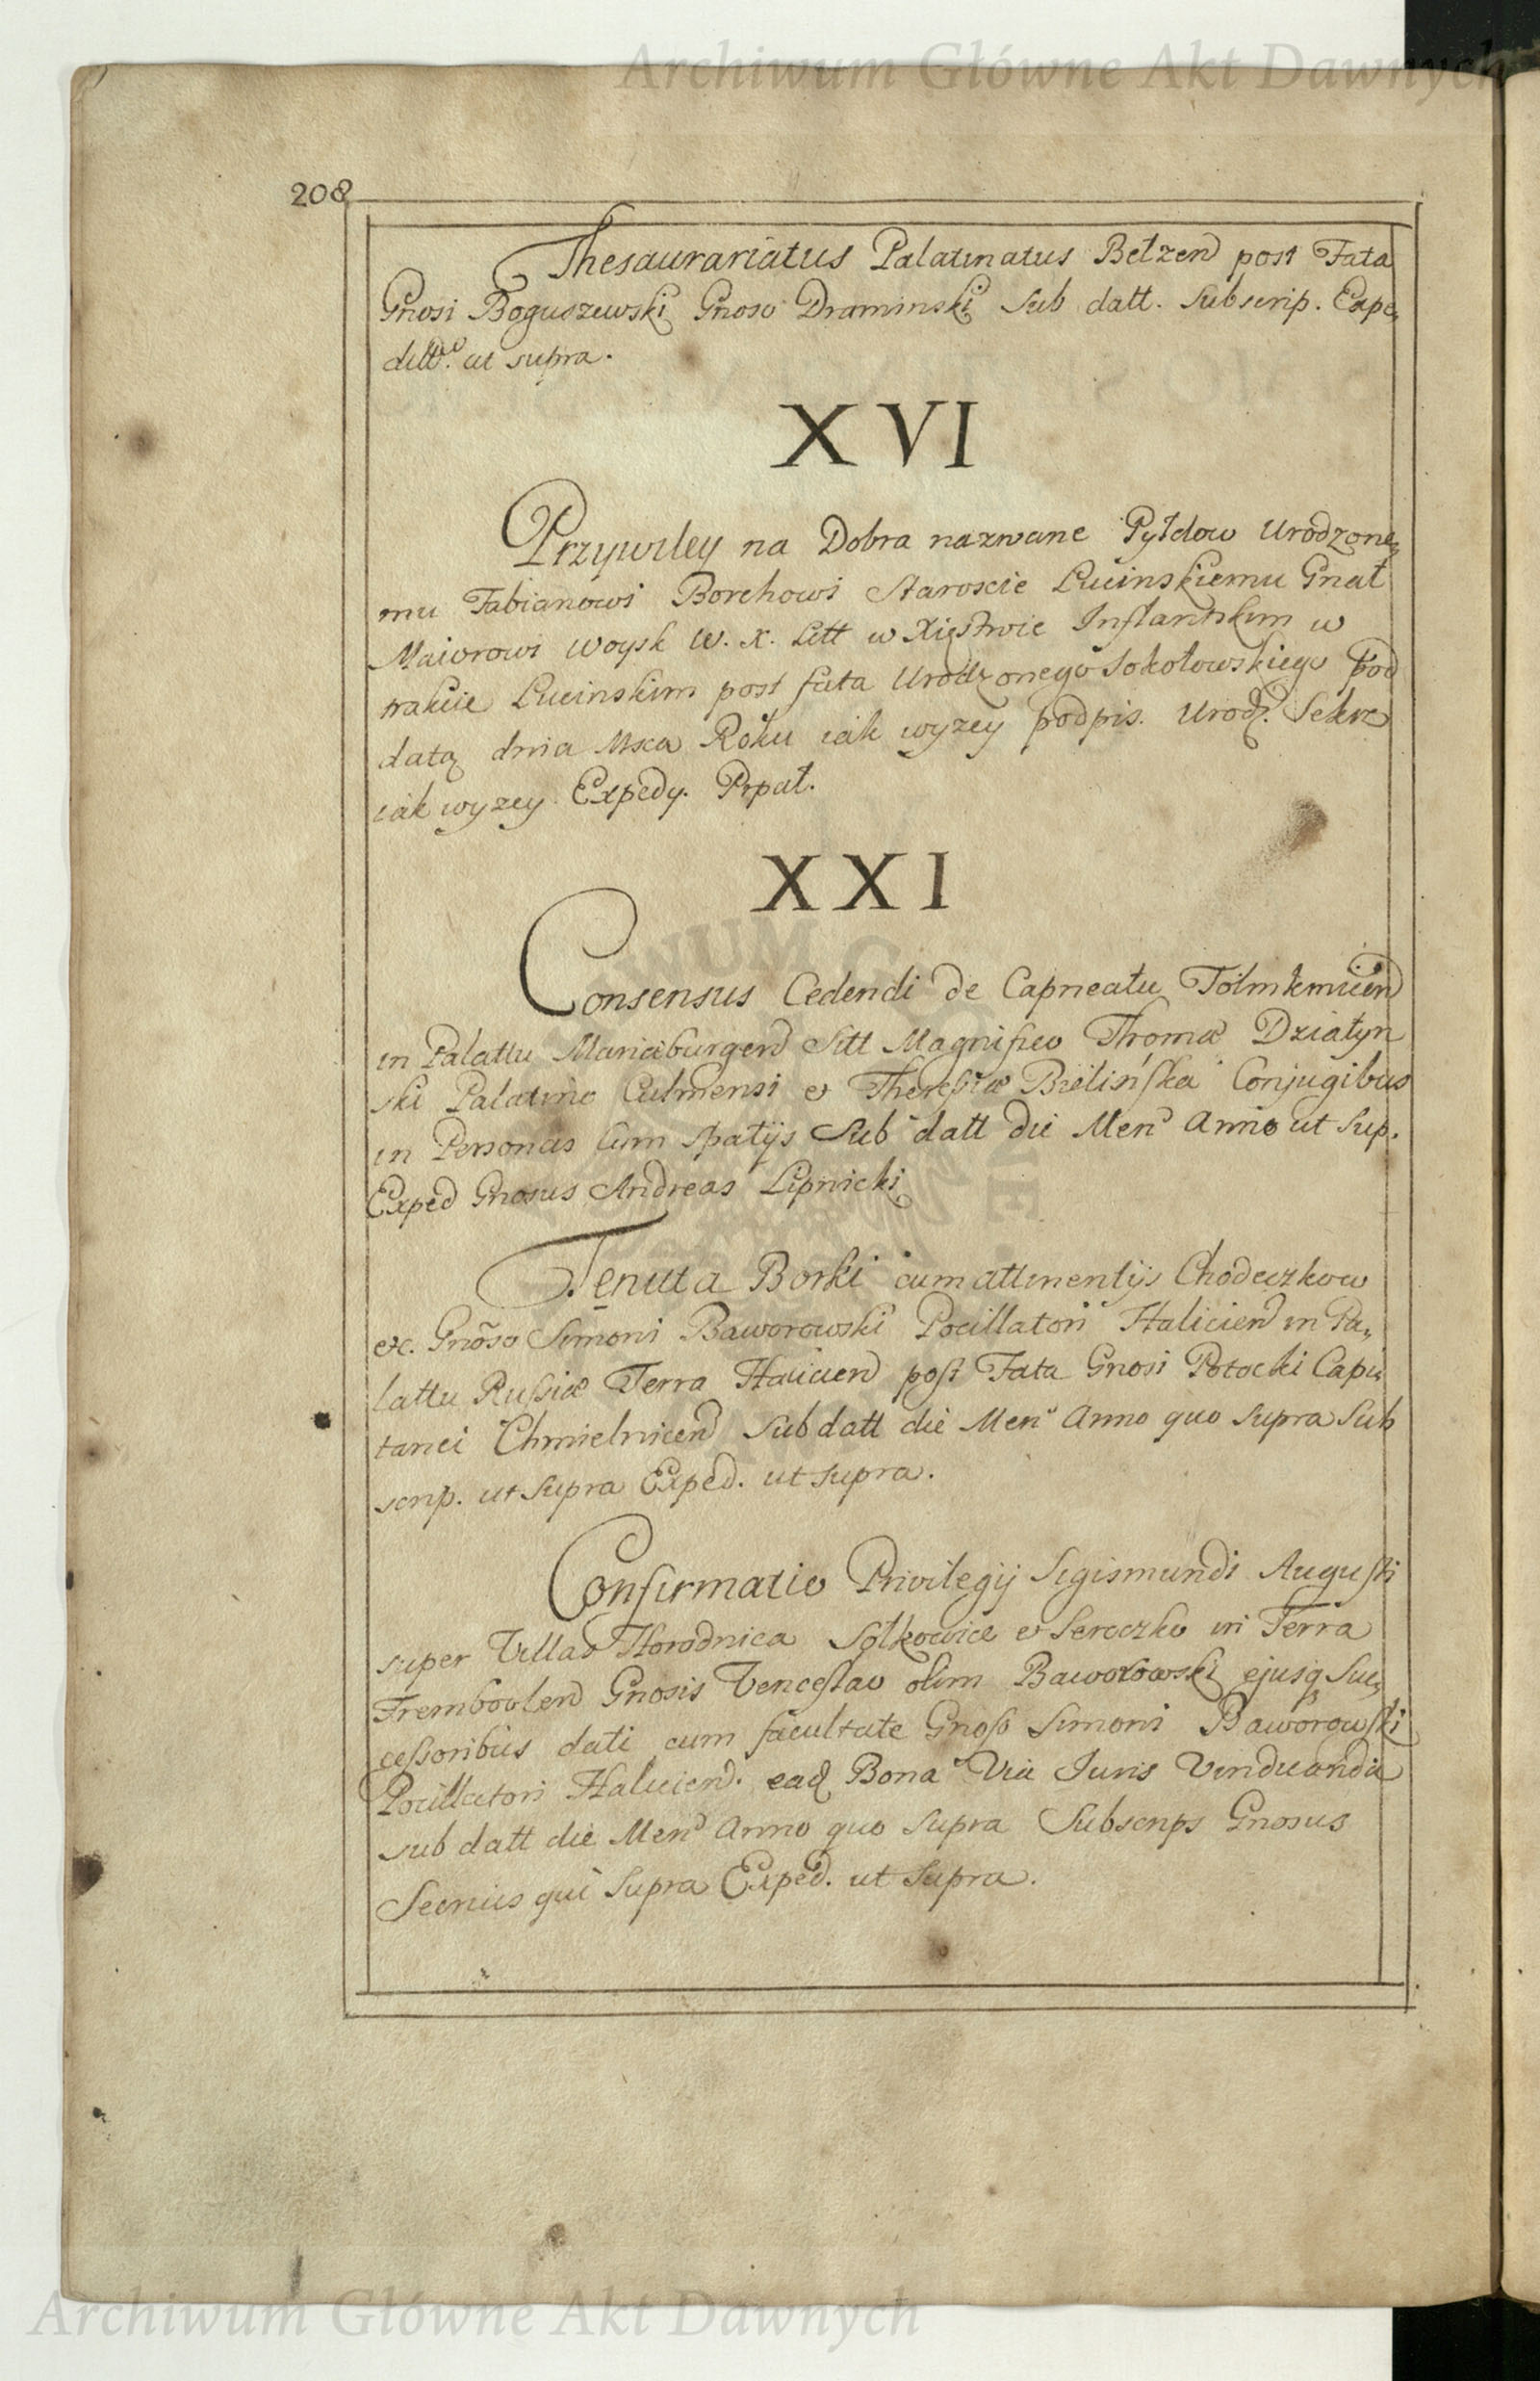 Archiwum Główne Akt Dawnych
208
Thesaurariatus Palatinatus Belzen post Fata
Gnosi Boguszewski Gnoso Draminski Sub datt. Subscrip. Expe,
ditt.º ut supra.
XVI
Przywiley na Dobra nazwane Pyłdow Urodzone,
mu Fabianowi Borchowi Staroscie Lucinskiemu Gnał
Maiorowi Woysk W. X. Litt w Xięstwie Inflantskim w
trakcie Lucinskim post fata Urodzonego Sokołowskiego pod
datą dnia Msca Roku iak wyzey podpis. Urodz. Sekre
iak wyzey Expedy. Prpał.
XXI
Consensus Cedendi de Capneatu Tolmkmicen
in Palattu Mariaeburgen Sitt Magnifico Thomæ Działyn
ski Palatino Culmensi et Theresiæ Bielińska Conjugibus
in Personas Cum spatijs Sub datt die Men Anno ut Sup.
Exped Gnosus Andreas Lipnicki
Tenuta Borki cum attinentijs Chodeczkow
etc. Gnoso Simoni Baworowski Pocillatori Halicien in Pa,
lattu Russiæ Terra Halicien post Fata Gnosi Potocki Capi,
tanei Chmielnicen sub datt die Men Anno quo supra Sub
scrip. ut supra Exped. ut supra.
Confirmatio Privilegij Sigismundi Augusti
super Villas Horodnica Sołkowice et Seroczko in Terra
Trembovlen Gnosis Venceslao olim Baworowski ejusq Suc,
cessoribus dati cum facultate Gnoso Simoni Baworowski
Pocillatori Halicien. ead Bona Via Juris Vinduandi
sub datt die Men Anno quo supra Subscrips Gnosus
Secrius qui supra Exped. ut supra.
Archiwum Główne Akt Dawnych